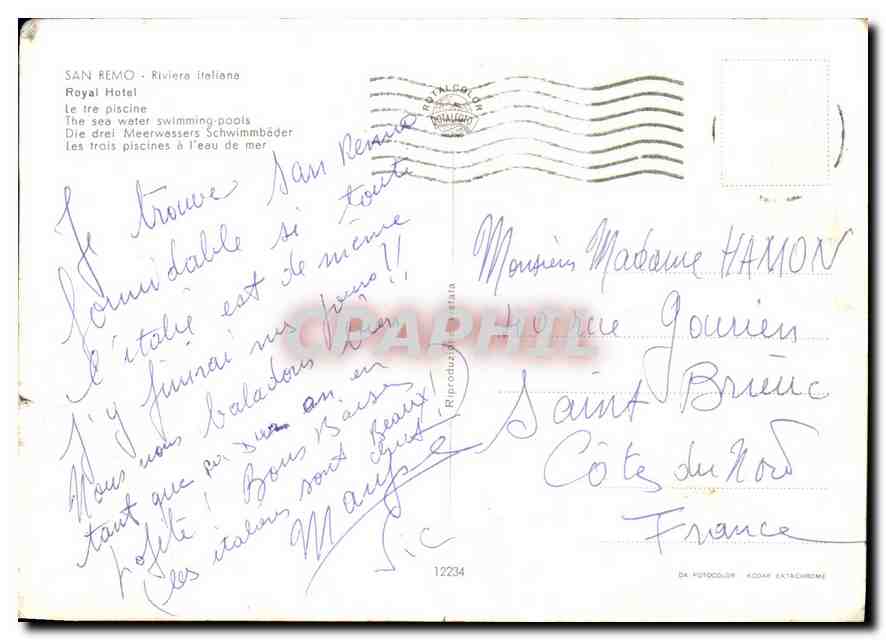 SAN REMO - Riviera italiana
Royal Hotel
Le tre piscine
The sea water swimming-pools
Die drei Meerwassers Schwimmbäder
Les trois piscines à l'eau de mer
ROTALCOLOR
ROTALFOTO
MILANO
Je trouve San Remo
formidable si toute
l'italie est de même
j'y finirai mes jours!!
Nous nous baladons bien!!
tant que on en
profite! Bons Baisers
(les italiens sont Beaux!
chut!
Maryse
Sic
Riproduzione vietata
Monsieur Madame HAMON
40 rue Gourien
Saint Brieuc
Côtes du Nord
France
12234
DA FOTOCOLOR KODAK EKTACHROME
CPAPHIL